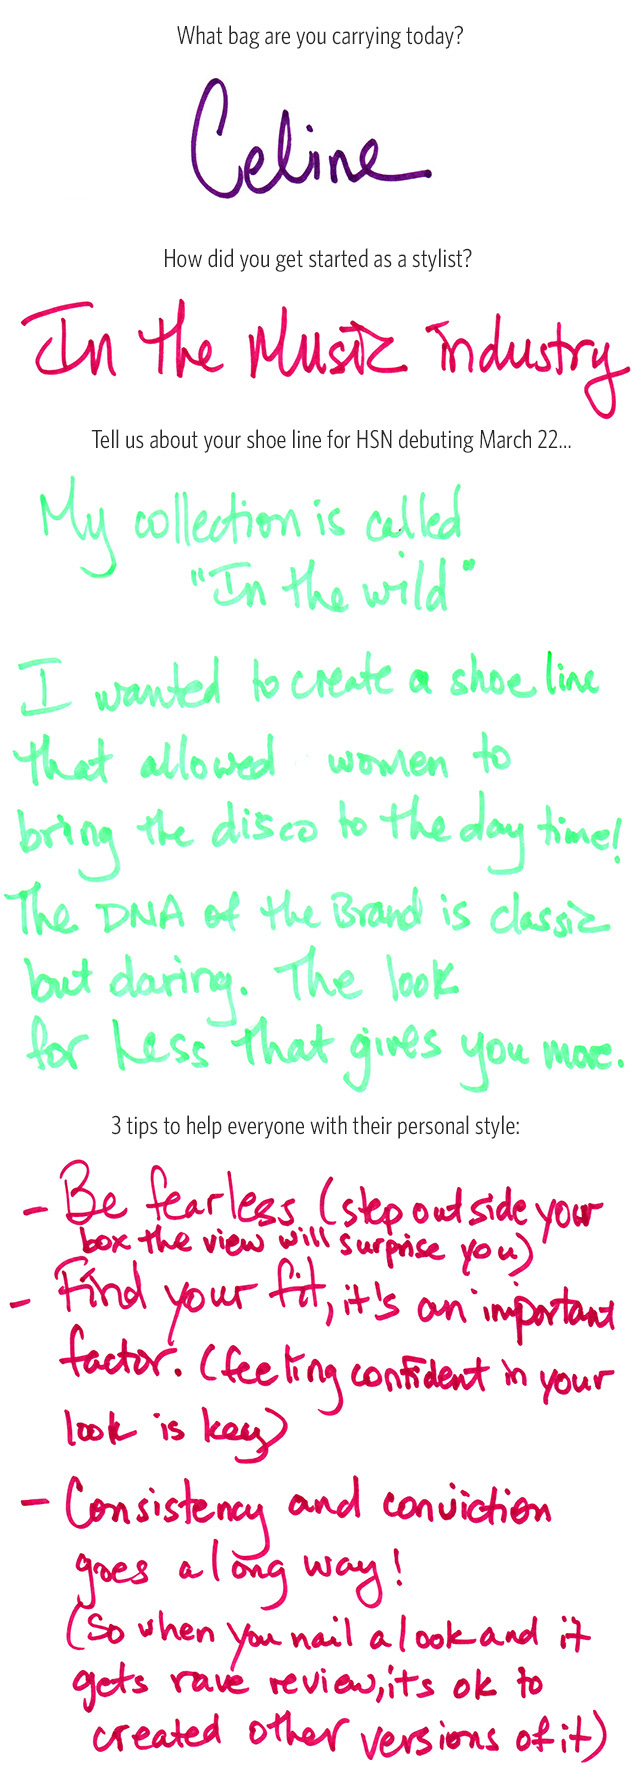 What bag are you carrying today?
Celine
How did you get started as a stylist?
In the Music industry
Tell us about your shoe line for HSN debuting March 22...
My collection is called
"In the wild"
I wanted to create a shoe line
that allowed women to
bring the disco to the day time!
The DNA of the Brand is classic
but daring. The look
for Less that gives you more.
3 tips to help everyone with their personal style:
- Be fearless (step outside your
box the view will surprise you)
- Find your fit, it's an important
factor. (feeling confident in your
look is key)
- Consistency and conviction
goes a long way!
(So when you nail a look and it
gets rave review, it's ok to
created other versions of it)